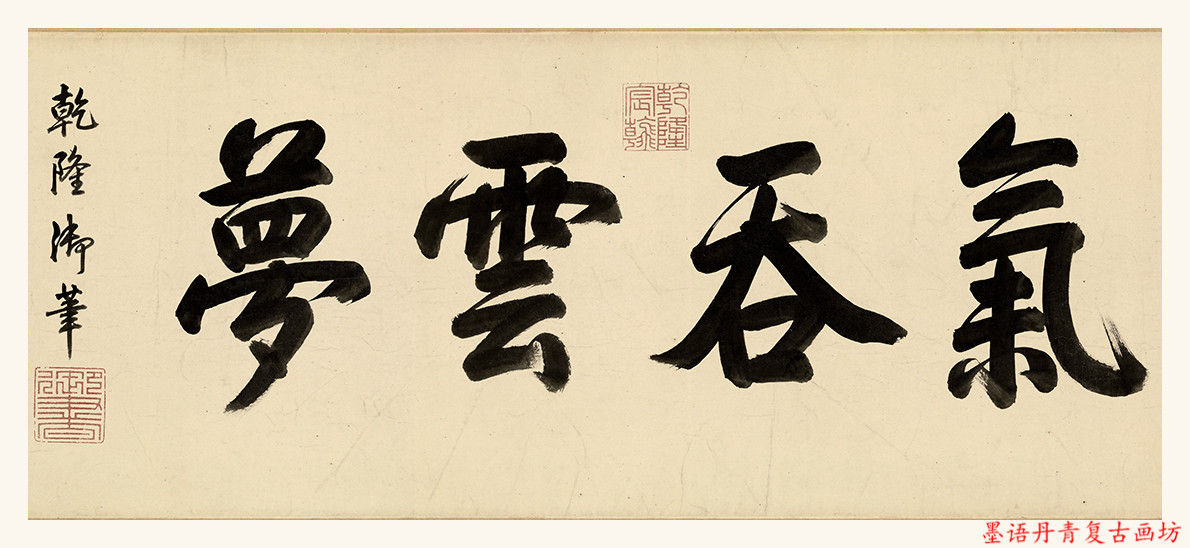 氣吞雲夢
乾隆御筆
乾隆宸翰
御書
墨语丹青复古画坊